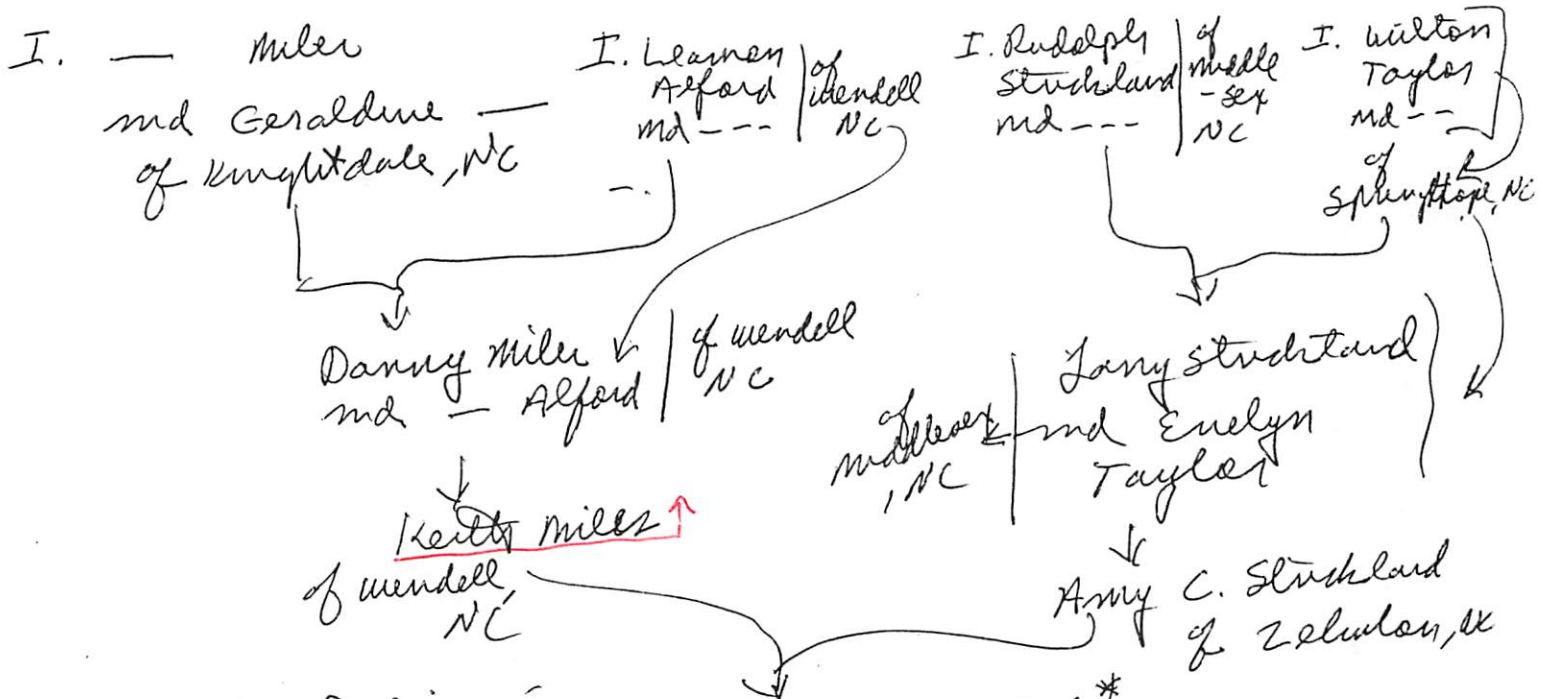 I. — Miles
md Geraldine —
of Knightdale, NC
I. Leamon
Alford
md - - -
of
Wendell
NC
I. Rudolph
Strickland
md - - -
of
Middle
-sex
NC
I. Wilton
Taylor
md - -
of
Springhope, NC
Danny Miles
md — Alford
of Wendell
NC
Larry Strickland
md Evelyn
Taylor
of
Middlesex
, NC
Keith Miles
of Wendell,
NC
Amy C. Strickland
of Zebulon, NC
*